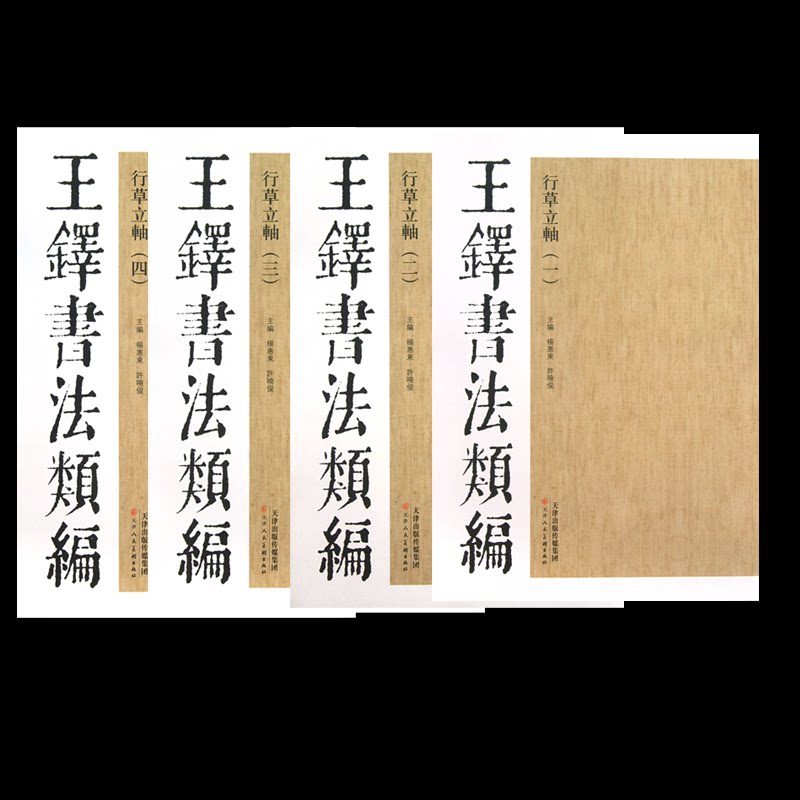 王鐸書法類編
行草立軸(四)
主編 楊惠東 許曉俊
天津出版传媒集团
天津人民美術出版社
王鐸書法類編
行草立軸(三)
主編 楊惠東 許曉俊
天津出版传媒集团
天津人民美術出版社
王鐸書法類編
行草立軸(二)
主編 楊惠東 許曉俊
天津出版传媒集团
天津人民美術出版社
王鐸書法類編
行草立軸(一)
主編 楊惠東 許曉俊
天津出版传媒集团
天津人民美術出版社